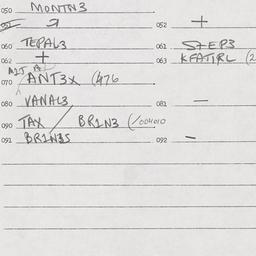 050 MONTN3
051 052 +
060 TEPAL3 061 STEP3
062 + 063 KFATIRL (2
070 ANT3X (476
080 VANAL3 081 —
090 TAX / BR1N3 (/004010
091 BR1N3S 092 —